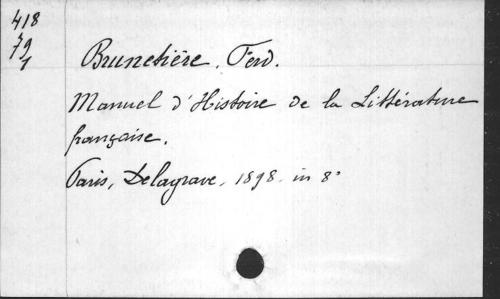 418
79
1
Brunetière, Ferd.
Manuel d'Histoire de la Littérature
française.
Paris, Delagrave, 1898. in 8°